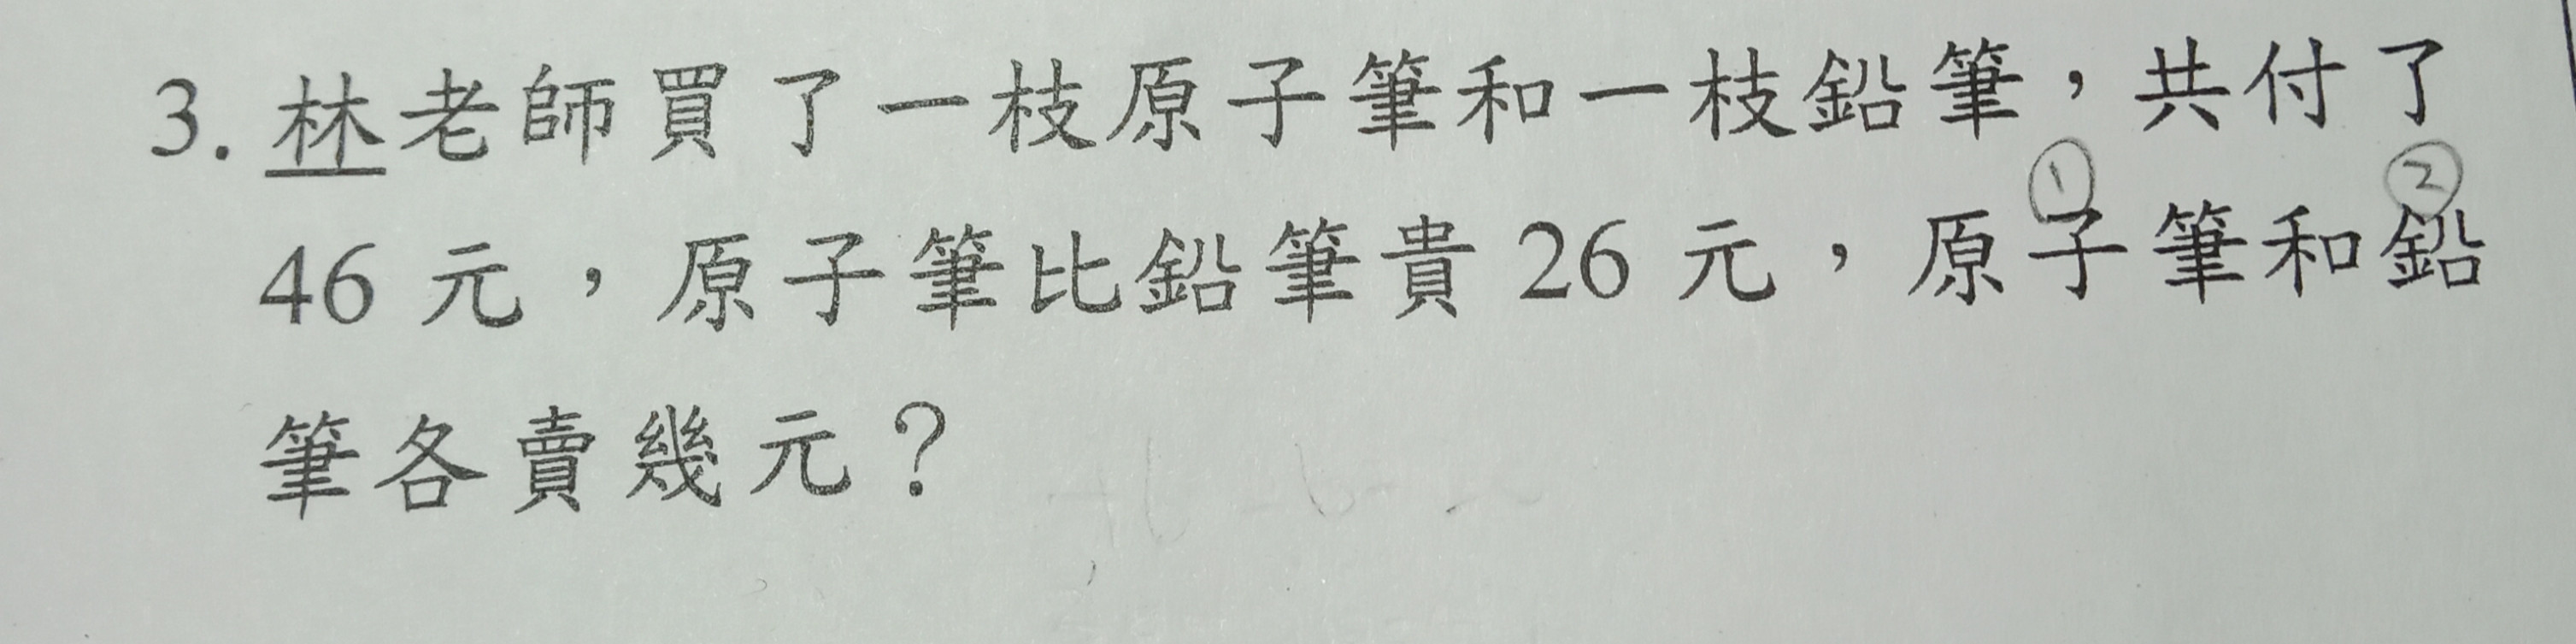 3. 林老師買了一枝原子筆和一枝鉛筆，共付了
① ②
46 元，原子筆比鉛筆貴 26 元，原子筆和鉛
筆各賣幾元？